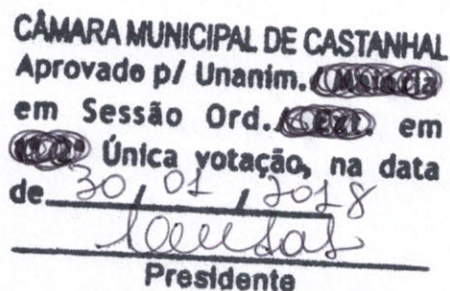 CÂMARA MUNICIPAL DE CASTANHAL
Aprovado p/ Unanim./
em Sessão Ord./ em
Única votação, na data
de 30 / 01 / 2018
Presidente